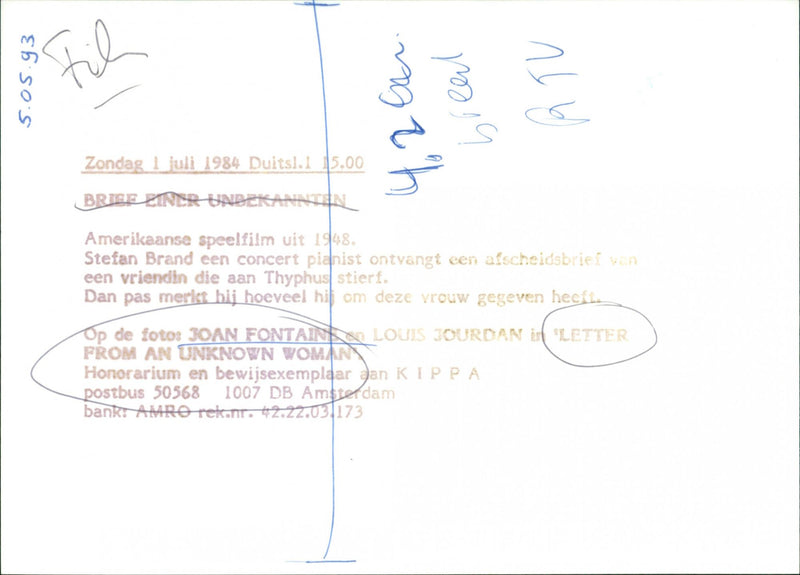 5.05.93
Film
4.2 cm.
breed
RTV
Zondag 1 juli 1984 Duitsl.1 15.00
BRIEF EINER UNBEKANNTEN
Amerikaanse speelfilm uit 1948.
Stefan Brand een concert pianist ontvangt een afscheidsbrief van
een vriendin die aan Thyphus stierf.
Dan pas merkt hij hoeveel hij om deze vrouw gegeven heeft.
Op de foto: JOAN FONTAINE en LOUIS JOURDAN in 'LETTER
FROM AN UNKNOWN WOMAN'.
Honorarium en bewijsexemplaar aan K I P P A
postbus 50568 1007 DB Amsterdam
bank: AMRO rek.nr. 42.22.03.173